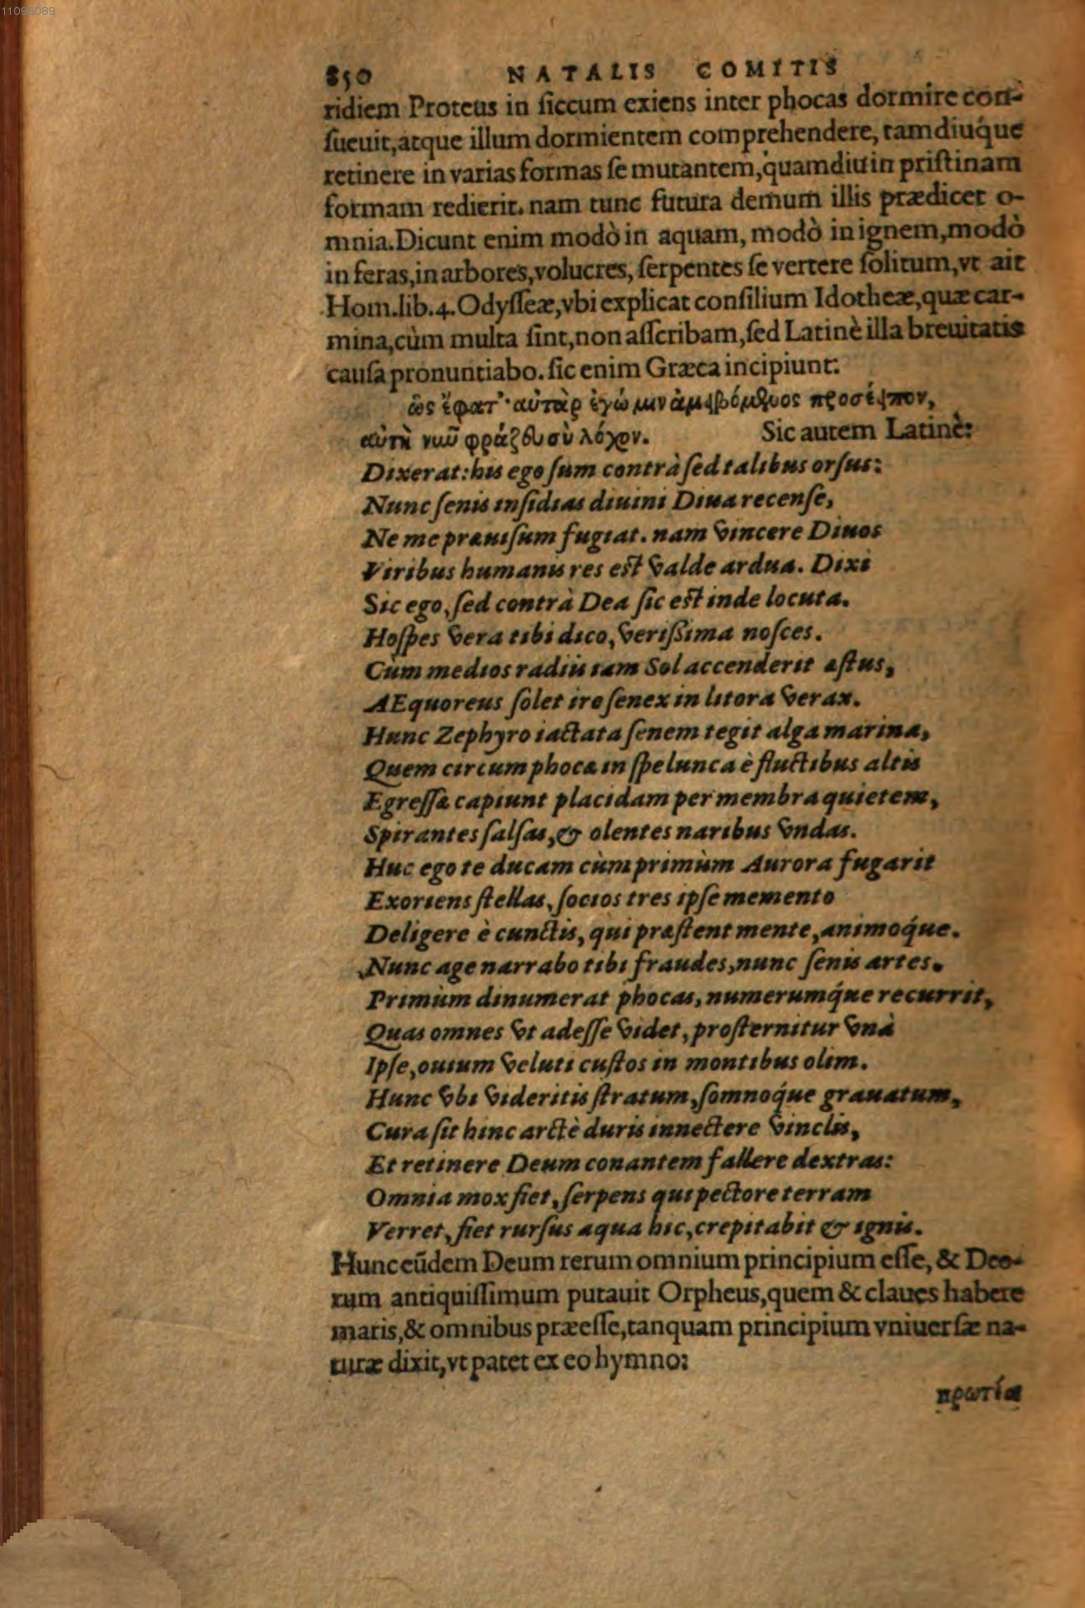 11098089
850 NATALIS COMITIS
ridiem Proteus in ſiccum exiens inter phocas dormire con-
ſueuit,atque illum dormientem comprehendere, tamdiuq́ue
retinere in varias formas ſe mutantem,quamdiu in priſtinam
formam redierit. nam tunc futura demum illis prædicet o-
mnia.Dicunt enim modò in aquam, modò in ignem,modò
in feras,in arbores,volucres, ſerpentes ſe vertere ſolitum,vt ait
Hom.lib.4.Odyſſeæ,vbi explicat conſilium Idotheæ,quæ car-
mina,cùm multa ſint,non aſſcribam,ſed Latinè illa breuitatis
cauſa pronuntiabo. ſic enim Græca incipiunt:
ὣς ἔφατ᾽· αὐτὰρ ἐγώ μιν ἀμειβόμενος προσέειπον,
αὐτὴ νῦν φράζευ σὺ λόχον. Sic autem Latinè:
Dixerat: his ego ſum contrà ſed talibus orſus:
Nunc ſenis inſidias diuini Diua recenſe,
Ne me præuiſum fugiat. nam vincere Diuos
Viribus humanis res eſt valde ardua. Dixi
Sic ego, ſed contrà Dea ſic eſt inde locuta.
Hoſpes vera tibi dico, veriſsima noſces.
Cùm medios radiis iam Sol accenderit æſtus,
AEquoreus ſolet ire ſenex in litora verax.
Hunc Zephyro iactata ſenem tegit alga marina,
Quem circum phocæ in ſpelunca è fluctibus altis
Egreſſæ capiunt placidam per membra quietem,
Spirantes ſalſas, & olentes naribus vndas.
Huc ego te ducam cùm primùm Aurora fugarit
Exoriens ſtellas, ſocios tres ipſe memento
Deligere è cunctis, qui præſtent mente, animoq́ue.
Nunc age narrabo tibi fraudes, nunc ſenis artes.
Primùm dinumerat phocas, numerumq́ue recurrit,
Quas omnes vt adeſſe videt, proſternitur vnà
Ipſe, ouium veluti cuſtos in montibus olim.
Hunc vbi videritis ſtratum, ſomnoq́ue grauatum,
Cura ſit hinc arctè duris innectere vinclis,
Et retinere Deum conantem fallere dextras:
Omnia mox fiet, ſerpens qui pectore terram
Verret, fiet rurſus aqua hic, crepitabit & ignis.
Hunc eũdem Deum rerum omnium principium eſſe, & Deo-
rum antiquiſſimum putauit Orpheus,quem & claues habere
maris,& omnibus præeſſe,tanquam principium vniuerſæ na-
turæ dixit,vt patet ex eo hymno:
πρωτέα